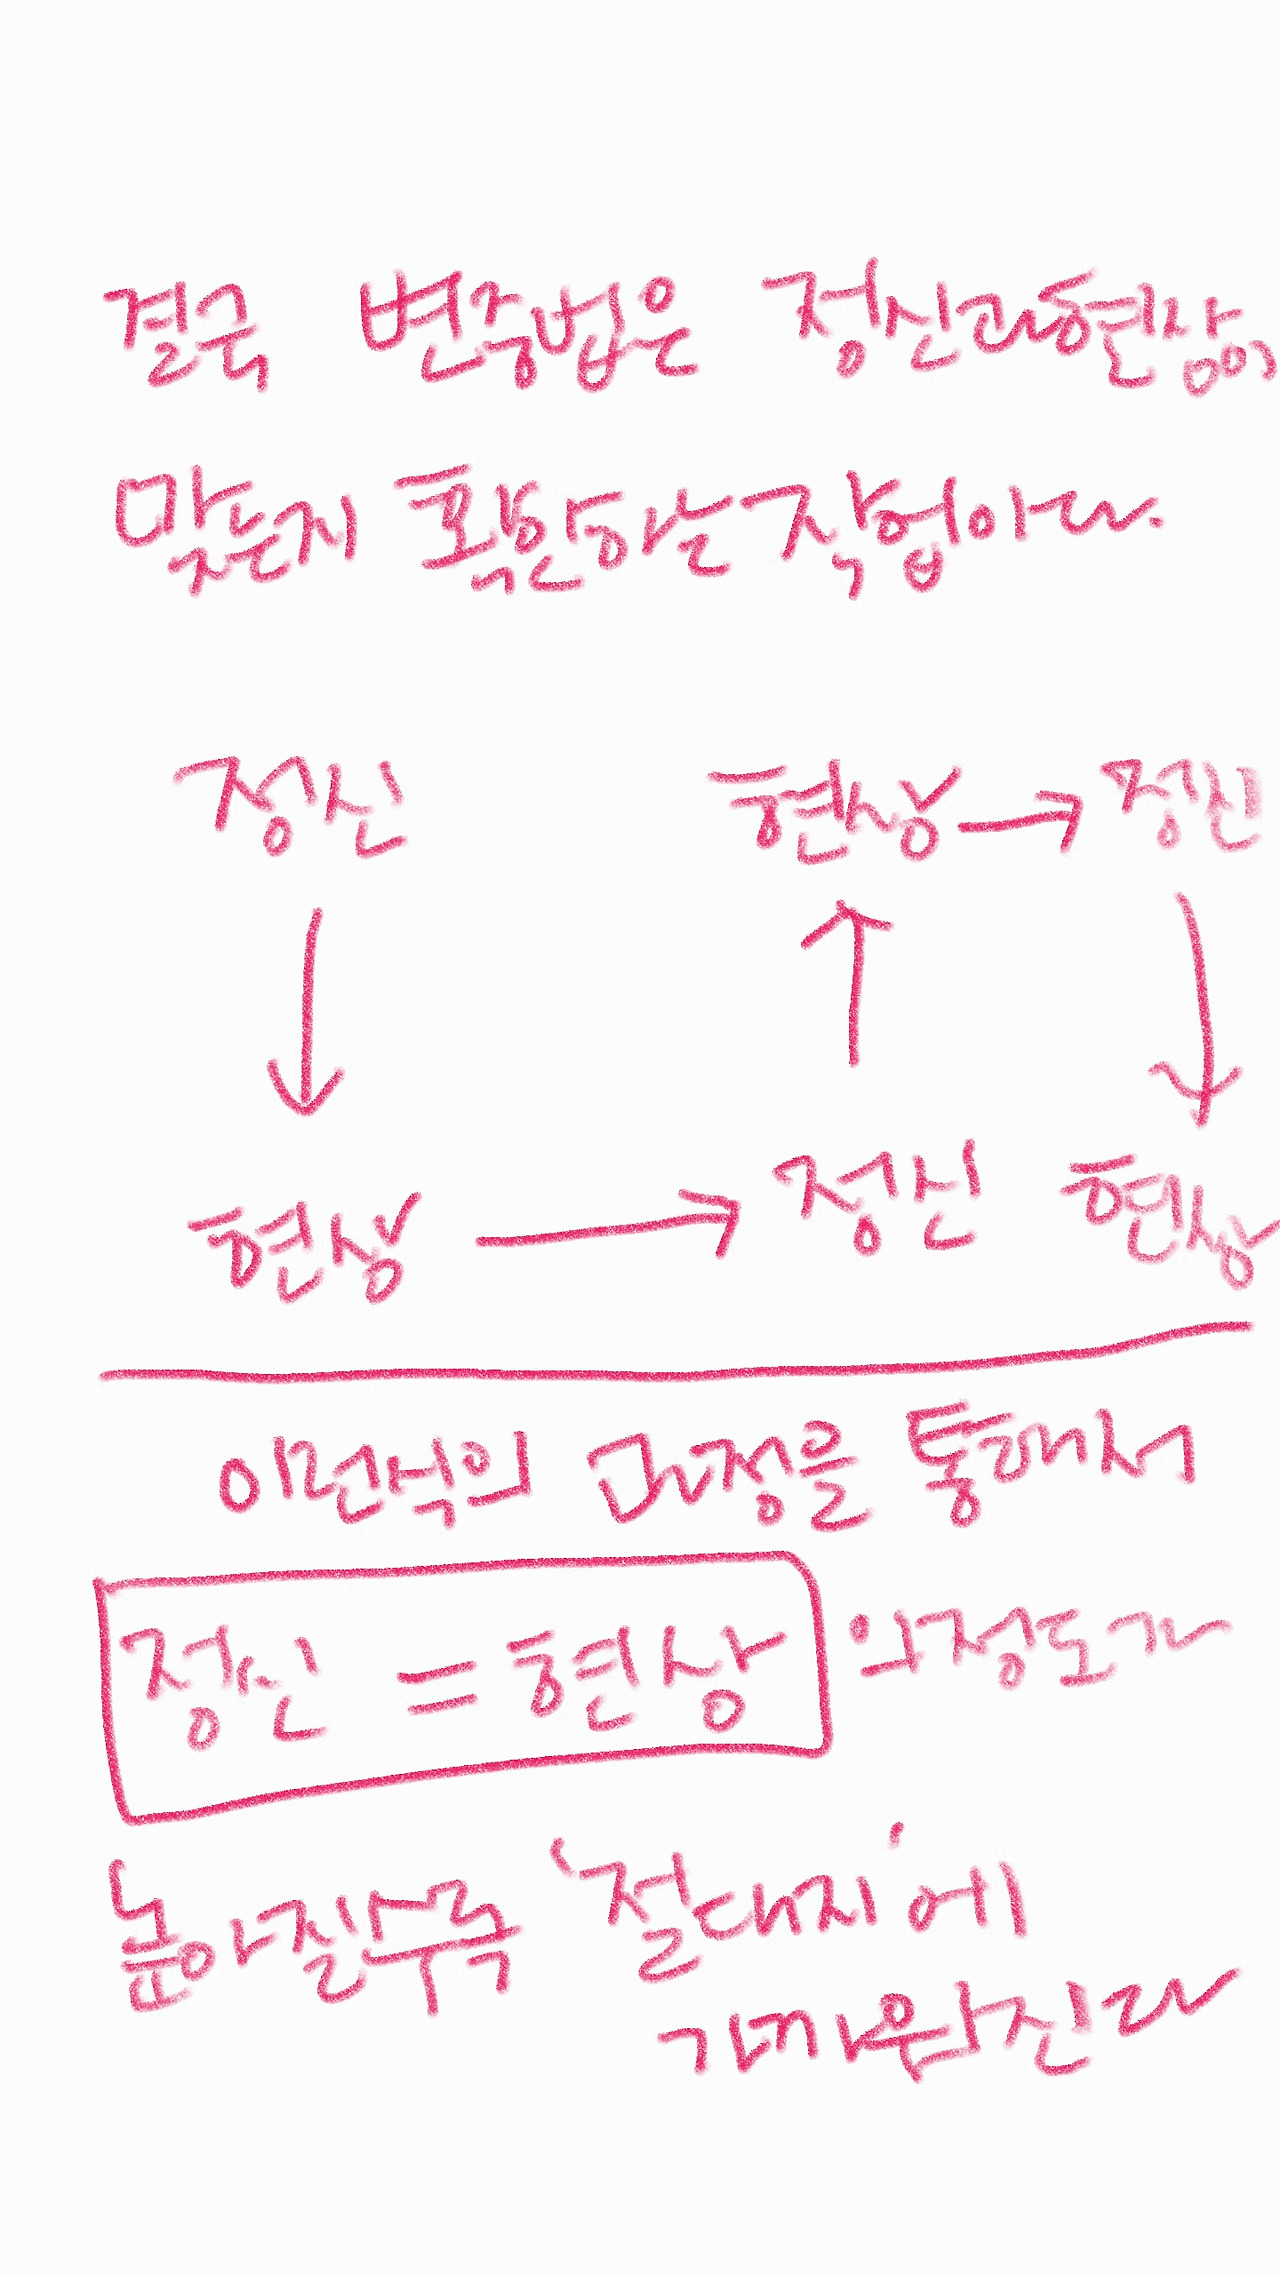 결국 변증법은 정신과 현상이
맞는지 확인하는 작업이다.
정신 현상 → 정신
↓ ↑ ↓
현상 → 정신 현상
이런식의 과정을 통해서
정신 = 현상 의 정도가
높아질수록 '절대지'에
가까워진다